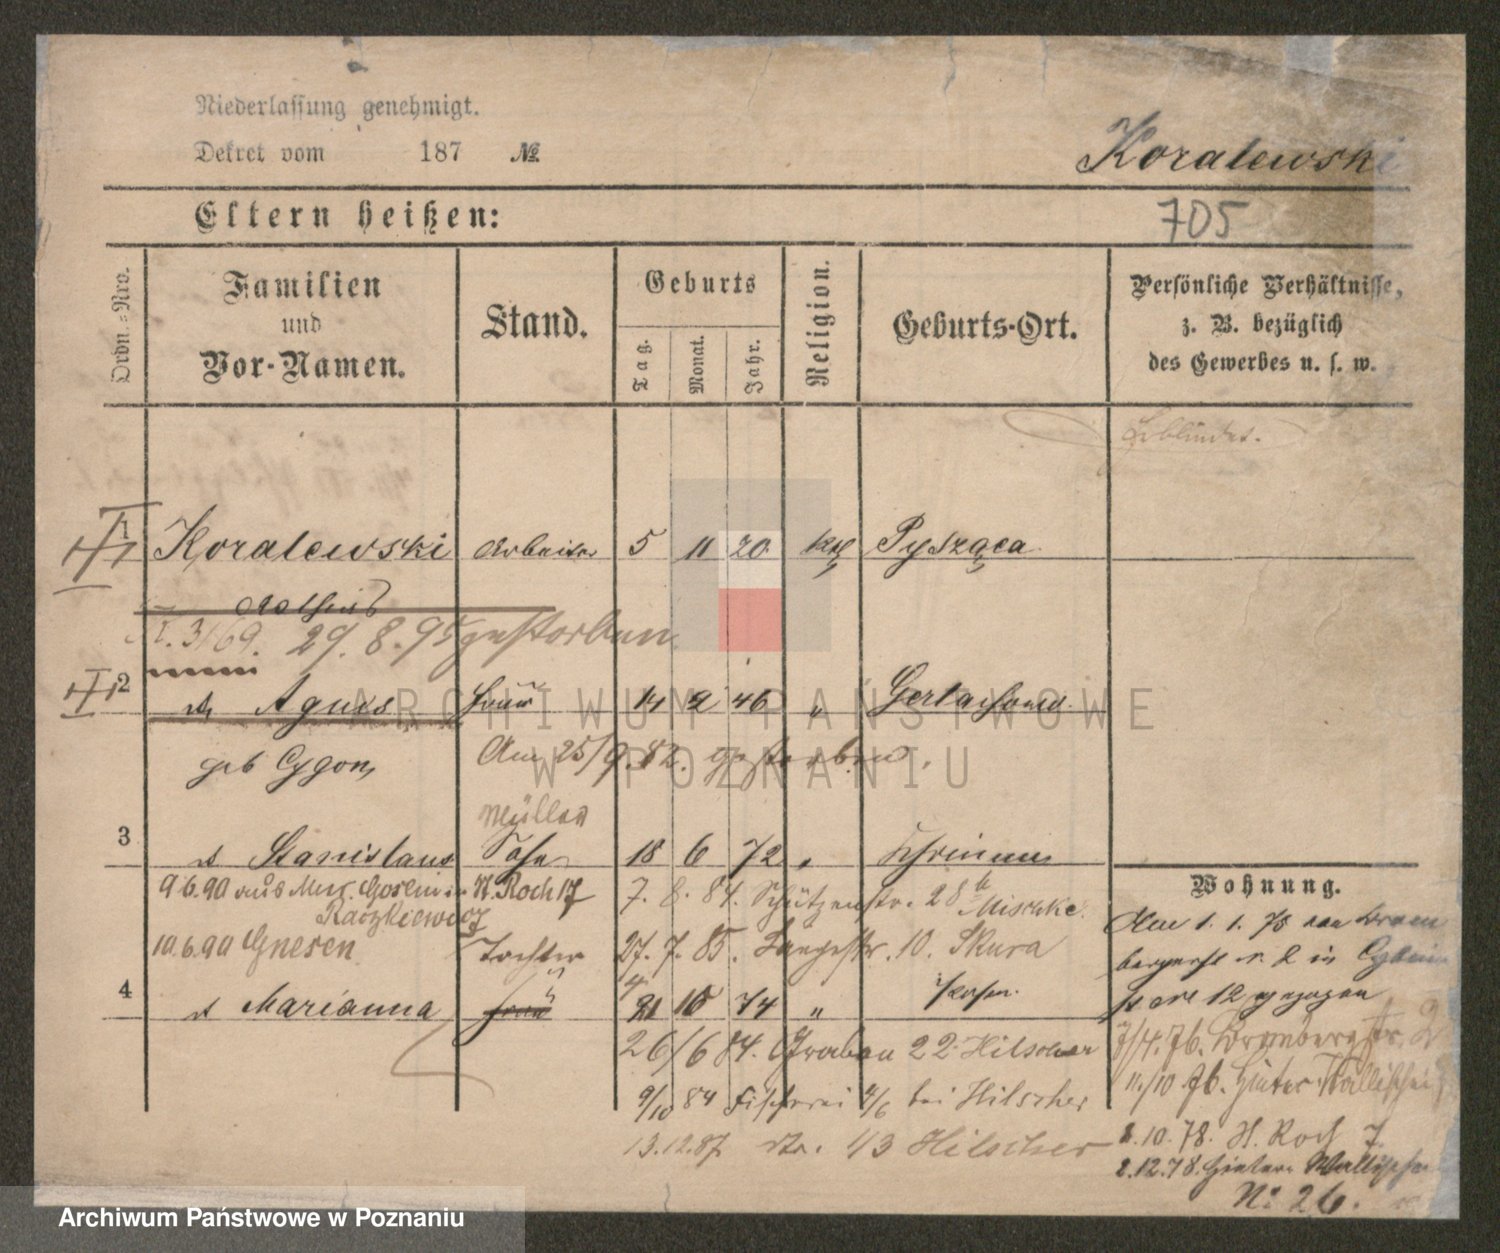 Niederlassung genehmigt.
Dekret vom 187 №
Koralewski
Eltern heißen:
705
Ordn.-Nro.
Familien
und
Vor-Namen.
Stand.
Geburts
Tag.
Monat.
Jahr.
Religion.
Geburts-Ort.
Persönliche Verhältnisse,
z. B. bezüglich
des Gewerbes u. s. w.
1 Koralewski Arbeiter 5 11 20 kth Pysząca
29. 8. 95 gestorben
2 Agnes Frau 14 2 46 "
geb Cygon Am 25/9.82. gestorben.
Müller
3 Stanislaus Sohn 18 6 72 " Schrimm
9 6.90 aus
Raczkiewicz
H. Roch 17
7. 8. 84. Schützenstr. 28b Mischke.
10.6.90 Gnesen
Tochter
27. 7. 85. Langestr. 10. Skura
4 Marianna 10 74 " Posen.
26/6 84. Graben 22. Hilscher
9/10 84 Fischerei 4/6 bei Hilscher
13.12.87 43 Hilscher
Wohnung.
Am 1. 1. 75
2 in
12 gezogen
7/4. 76. Brombergstr. 2
11./10. 76. Hinter Wallischei
2.10.78. H. Roch 7.
2.12.78. Hinter Wallischei
No 26.
ARCHIWUM PAŃSTWOWE
W POZNANIU
Archiwum Państwowe w Poznaniu